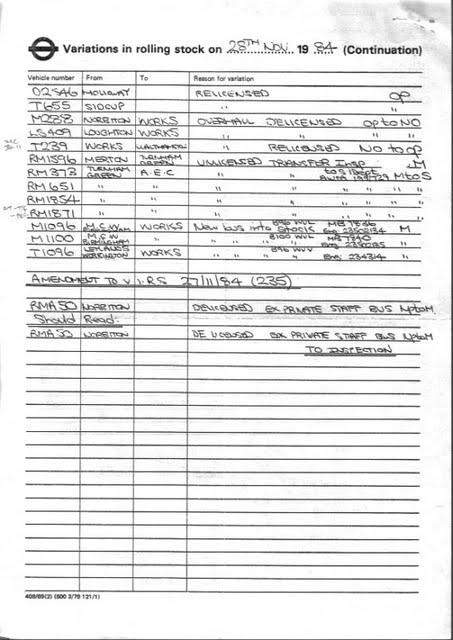 Variations in rolling stock on 28TH NOV. 19 84 (Continuation)
Vehicle number From To Reason for variation
D2546 HOLLOWAY RELICENSED OP
T655 SIDCUP " "
M288 NORBITON WORKS OVERHAUL DELICENSED OP TO NO
LS409 LOUGHTON WORKS " " "
T239 WORKS WALTHAMSTOW " RELICENSED NO to OP
RM1596 MERTON TURNHAM GREEN UNLICENSED TRANSFER Insp M
RM373 TURNHAM GREEN A.E.C " " to S Dept M to S
RM651 " " " " " "
RM1854 " " " " " "
RM1871 " " " " " "
M1096 M.C.W WORKS New bus into Stock B96 WUL M
M1100 M.C.W BIRMINGHAM " " " " B100 WUL "
T1096 LEYLANDS WORKINGTON WORKS " " " B96 WUV Eng. 234314 "
AMENDMENT TO V.I.RS 27/11/84 (235)
RMA50 NORBITON DELICENSED EX PRIVATE STAFF BUS NptoM
Should Read:
RMA50 NORBITON DELICENSED EX PRIVATE STAFF BUS NptoM
TO INSPECTION